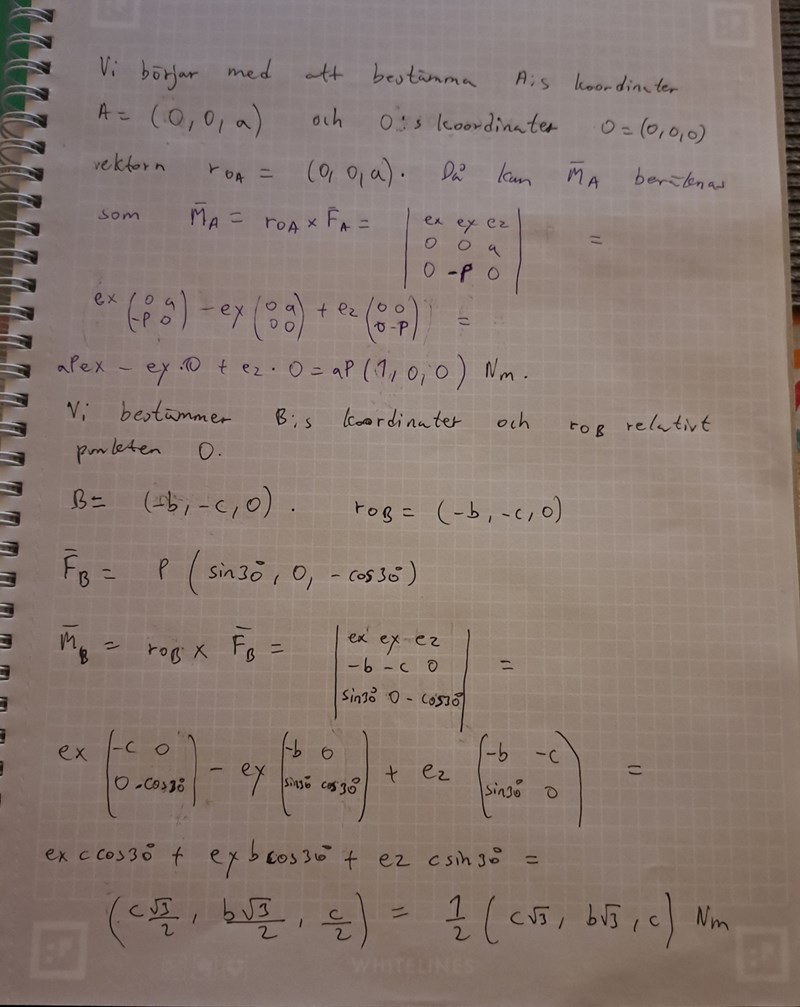 Vi börjar med att bestämma A:s koordinater
A = (0,0,a) och O:s koordinater O = (0,0,0)
vektorn r_OA = (0,0,a). Då kan M̄_A beräknas
som M̄_A = r_OA × F̄_A = | ex ey ez | =
0 0 a
0 -P 0
ex (0 a) - ey (0 a) + ez (0 0) =
-P 0 0 0 0 -P
aPex - ey·0 + ez·0 = aP(1,0,0) Nm.
Vi bestämmer B:s koordinater och r_OB relativt
punkten O.
B = (-b,-c,0). r_OB = (-b,-c,0)
F̄_B = P (sin30°, 0, -cos30°)
M̄_B = r_OB × F̄_B = | ex ey ez | =
-b -c 0
sin30° 0 -cos30°
ex (-c 0) - ey (-b 0) + ez (-b -c) =
0 -cos30° sin30° cos30° sin30° 0
ex c cos30° + ey b cos30° + ez c sin30° =
(c√3/2, b√3/2, c/2) = 1/2 (c√3, b√3, c) Nm
WHITELINES